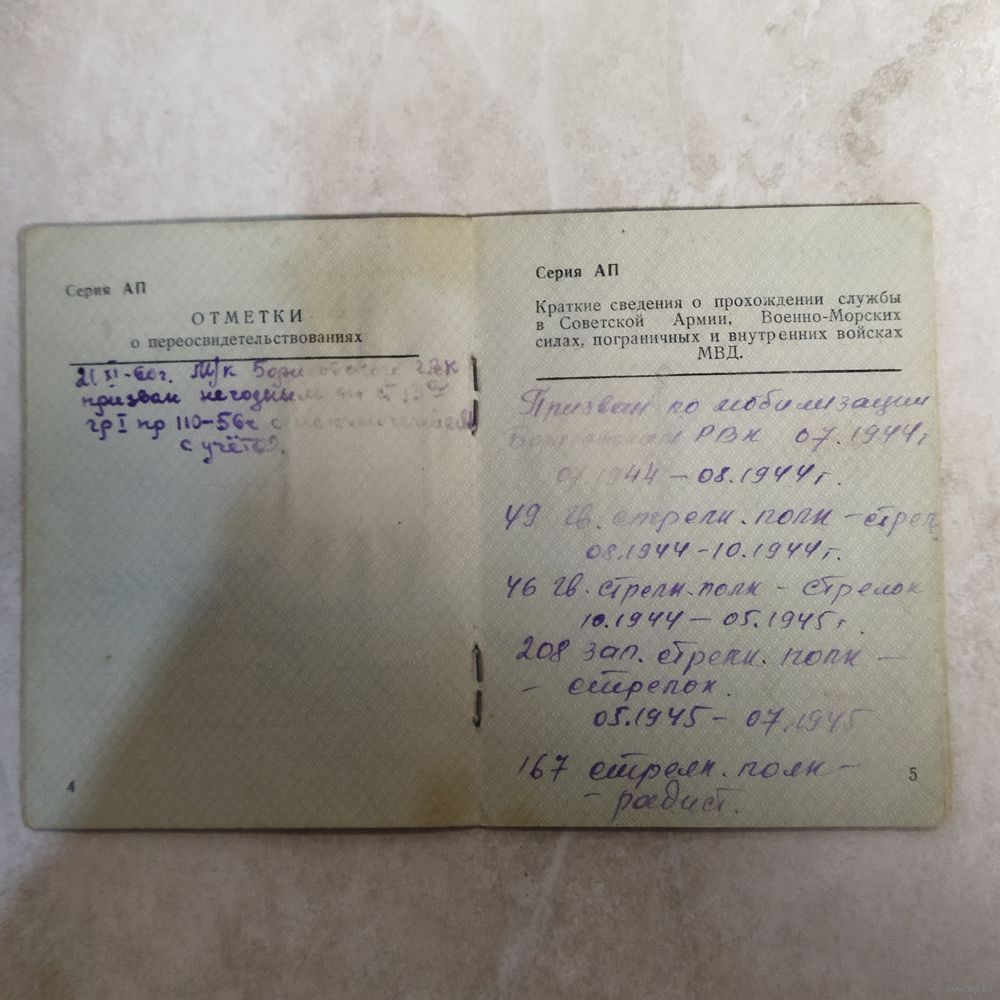 Серия АП
ОТМЕТКИ
о переосвидетельствованиях
21 XI-60г. М/к ГВК
признан негодным по ст. 13
гр I пр 110-56г с
с учёта.
4
Серия АП
Краткие сведения о прохождении службы
в Советской Армии, Военно-Морских
силах, пограничных и внутренних войсках
МВД.
Призван по мобилизации
РВК 07.1944г
07.1944 — 08.1944г.
49 гв. стрелк. полк — стрел
08.1944-10.1944г.
46 гв. стрелк. полк - стрелок
10.1944 — 05.1945г.
208 зап. стрелк. полк —
- стрелок.
05.1945 - 07.1945
167 стрелк. полк —
- радист.
5